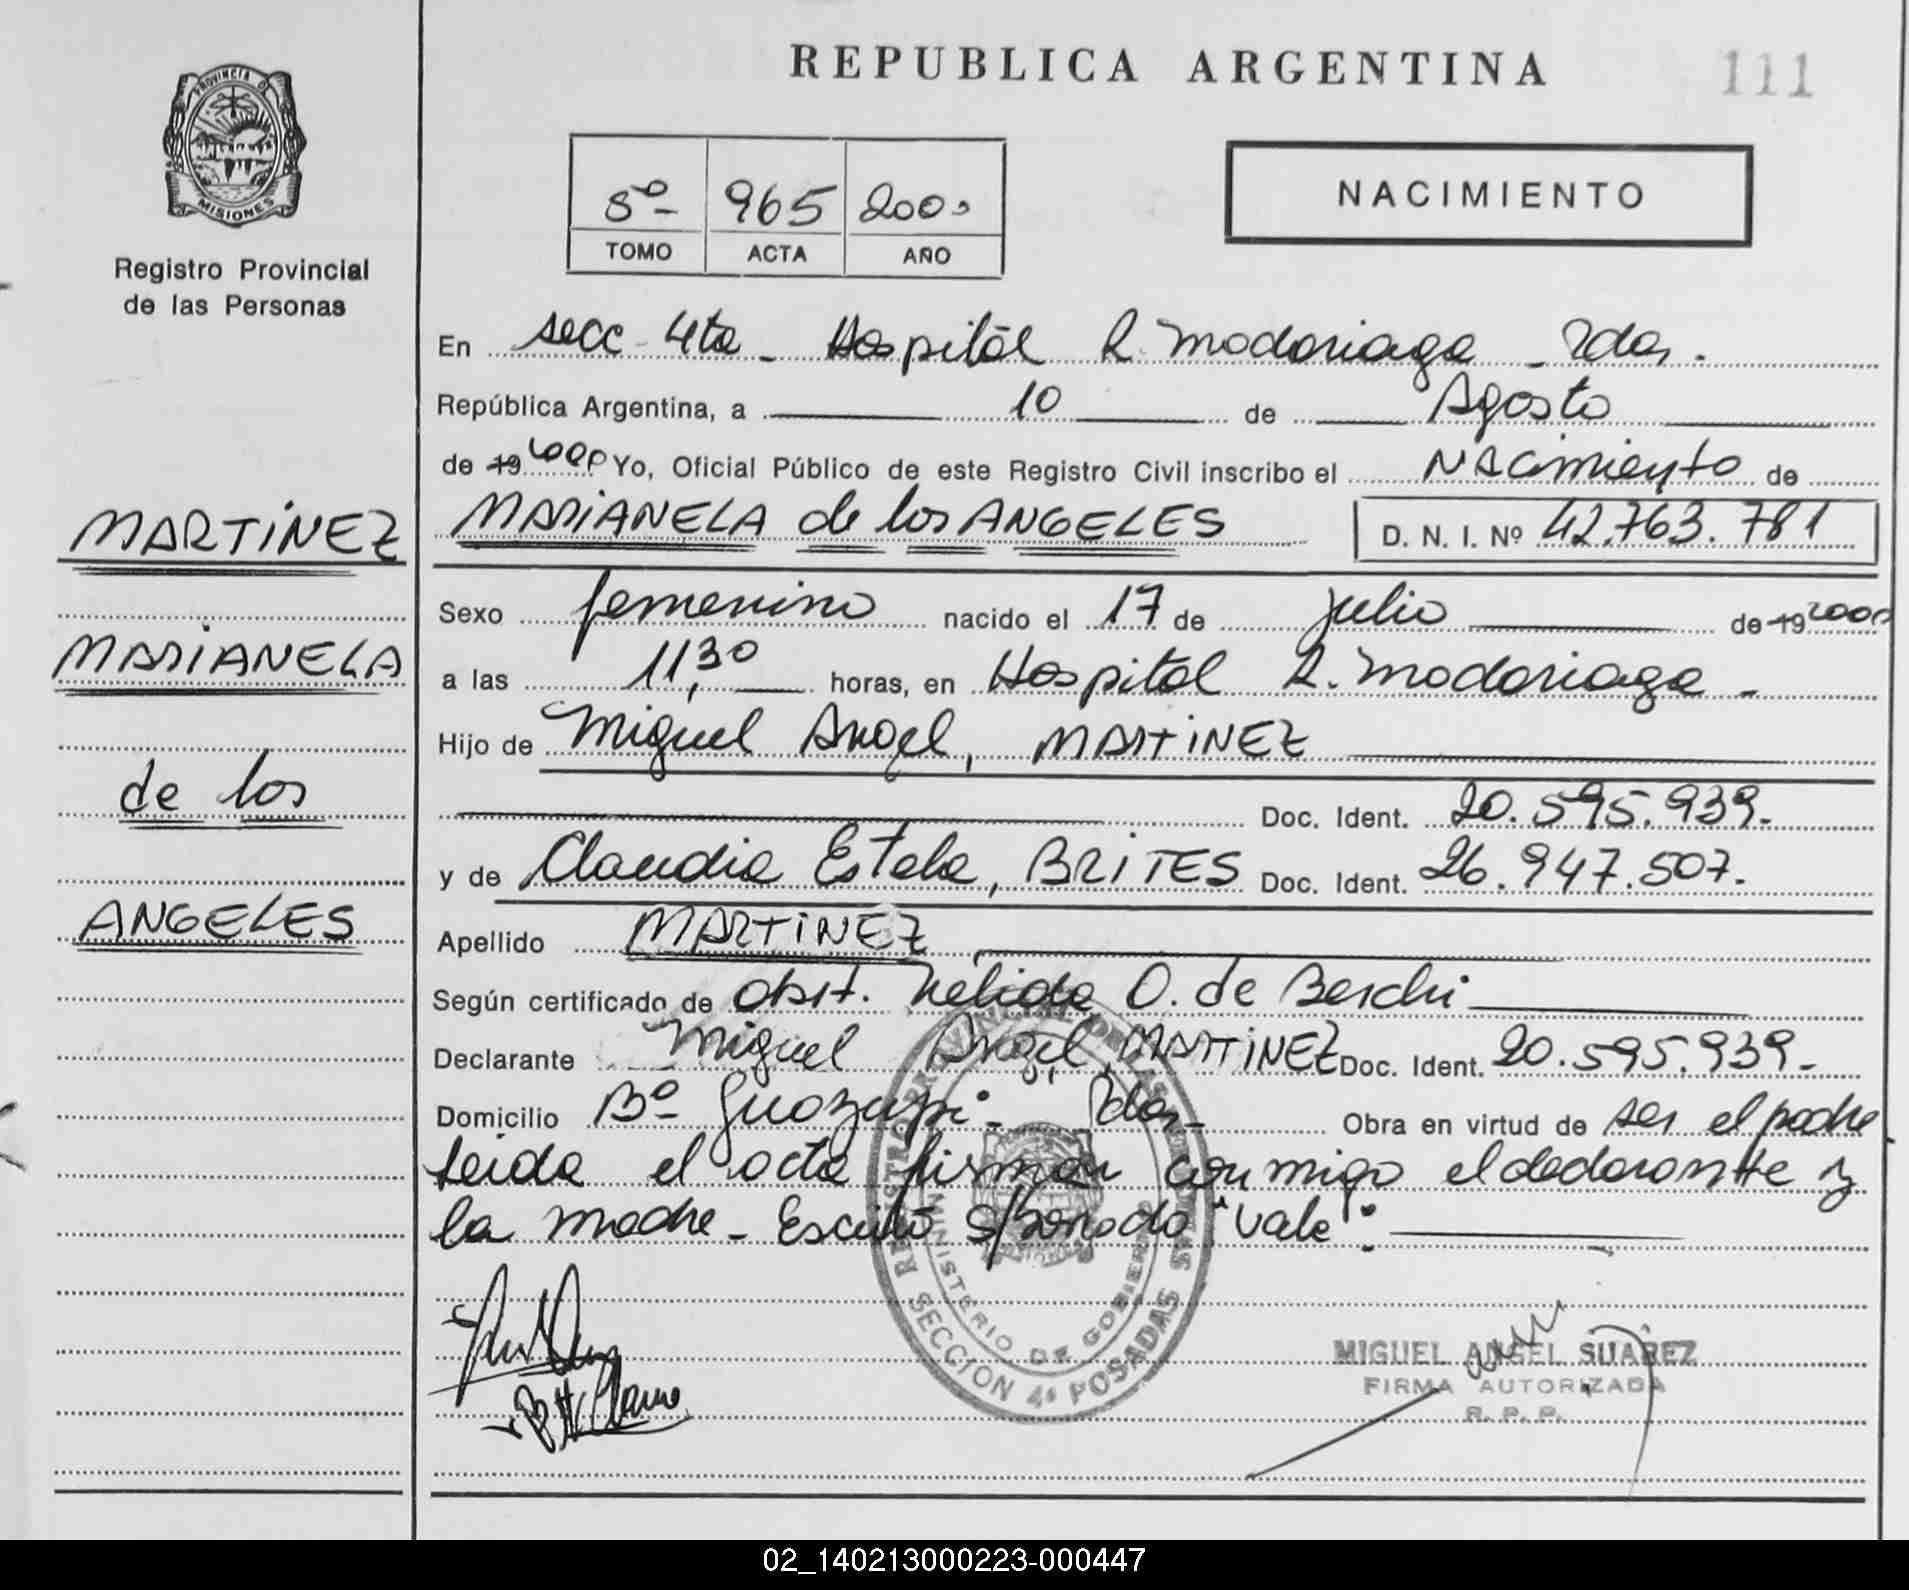 REPUBLICA ARGENTINA
111
PROVINCIA D
MISIONES
Registro Provincial
de las Personas
5º- 965 2000
TOMO ACTA AÑO
NACIMIENTO
En secc 4ta - Hospital R. Madariaga - Pdas.
República Argentina, a 10 de Agosto
de 19 2000 Yo, Oficial Público de este Registro Civil inscribo el NACimieNto de
MARiANELA de los ANGELES D. N. I. Nº 42.763.781
Sexo femenino nacido el 17 de julio de 19 2000
a las 11,30 horas, en Hospital R. Madariaga -
Hijo de Miguel Angel, MARTiNEZ
Doc. Ident. 20.595.939.-
y de Claudia Estela, BRiTES Doc. Ident. 26.947.507.-
Apellido MARTiNEZ
Según certificado de obst. Nelida O. de Berchi
Declarante Miguel Angel MARTiNEZ Doc. Ident. 20.595.939.-
Domicilio Bº- Guazupi - Pdas.- Obra en virtud de ser el padre.
Leida el acta firman conmigo el declarante y
la madre - Escrito s/borrado "Vale":
MARTiNEZ
MARiANELA
de los
ANGELES
REGISTRO PROVINCIAL DE LAS PERSONAS
MINISTERIO DE GOBIERNO
SECCION 4ª POSADAS
MIGUEL ANGEL SUAREZ
FIRMA AUTORIZADA
R. P. P.
02_140213000223-000447